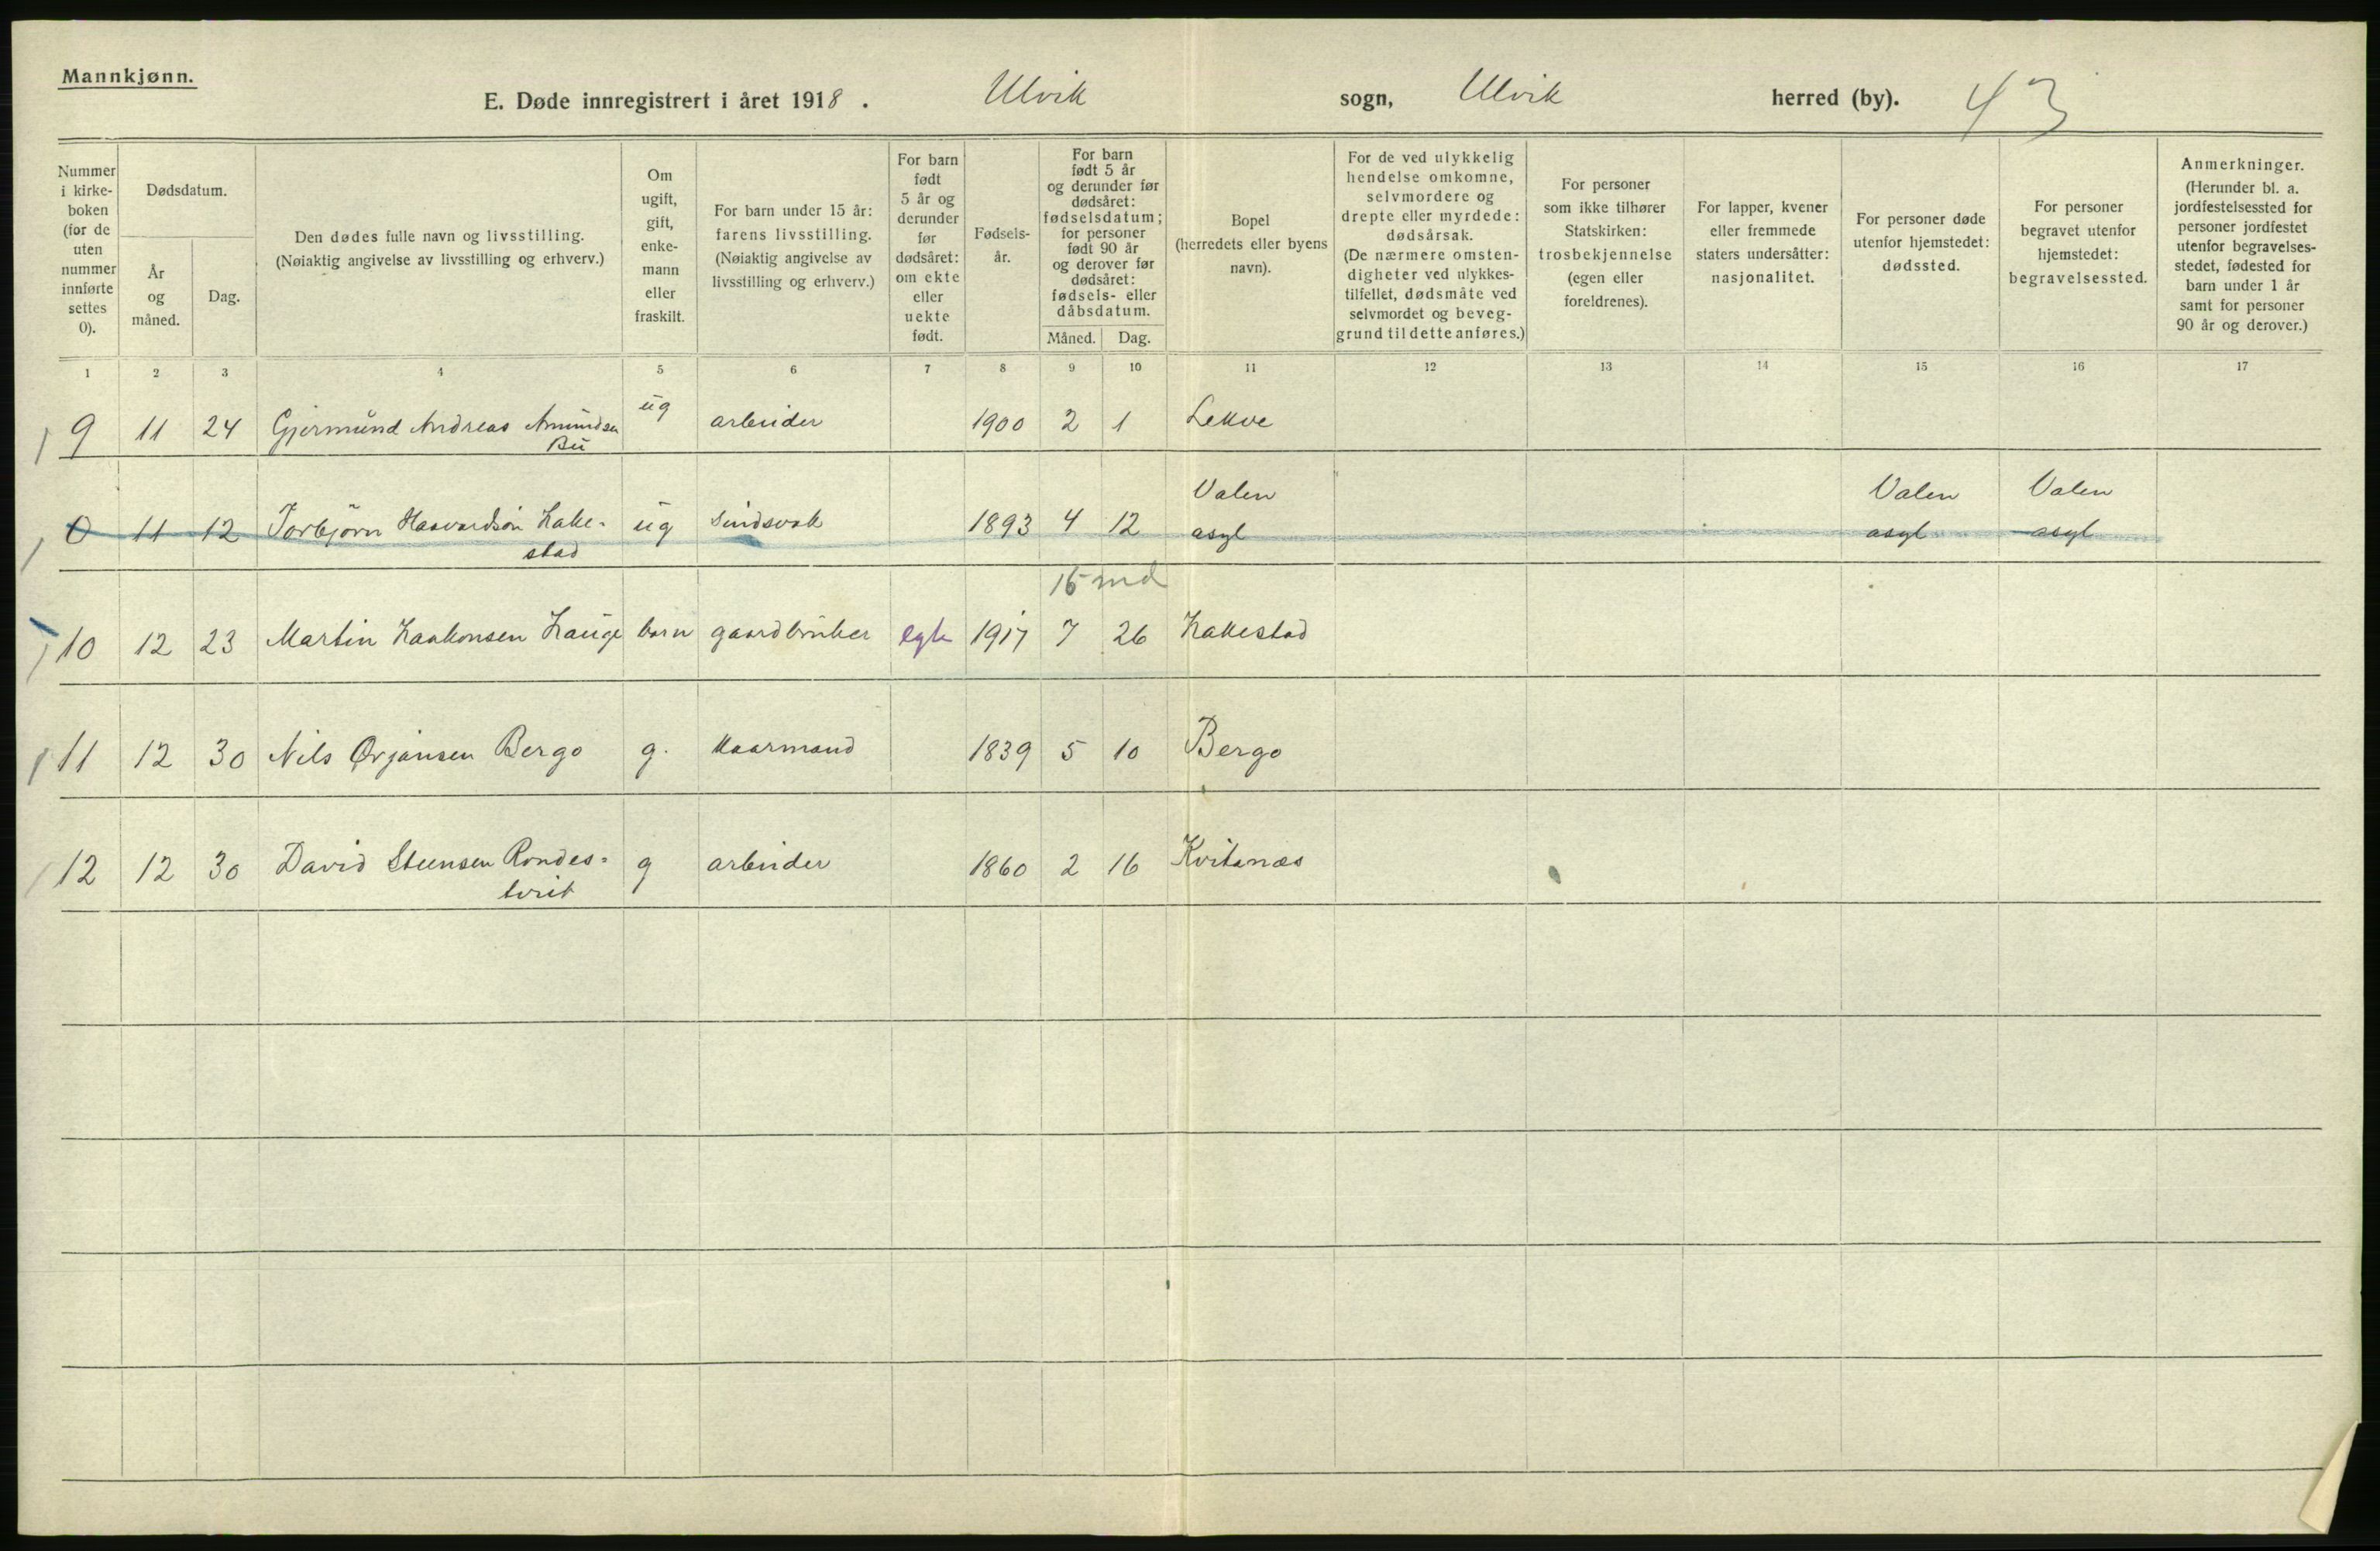 Mannkjønn.
E. Døde innregistrert i året 1918. Ulvik sogn, Ulvik herred (by). 43
Nummer i kirke-boken (for de uten nummer innførte settes 0).
Dødsdatum.
År og måned.
Dag.
Den dødes fulle navn og livsstilling.
(Nøiaktig angivelse av livsstilling og erhverv.)
Om ugift, gift, enke-mann eller fraskilt.
For barn under 15 år: farens livsstilling. (Nøiaktig angivelse av livsstilling og erhverv.)
For barn født 5 år og derunder før dødsåret: om ekte eller uekte født.
Fødsels-år.
For barn født 5 år og derunder før dødsåret: fødselsdatum; for personer født 90 år og derover før dødsåret: fødsels- eller dåbsdatum.
Måned.
Dag.
Bopel (herredets eller byens navn).
For de ved ulykkelig hendelse omkomne, selvmordere og drepte eller myrdede: dødsårsak. (De nærmere omsten-digheter ved ulykkes-tilfellet, dødsmåte ved selvmordet og beveg-grund til dette anføres.)
For personer som ikke tilhører Statskirken: trosbekjennelse (egen eller foreldrenes).
For lapper, kvener eller fremmede staters undersåtter: nasjonalitet.
For personer døde utenfor hjemstedet: dødssted.
For personer begravet utenfor hjemstedet: begravelsessted.
Anmerkninger. (Herunder bl. a. jordfestelsessted for personer jordfestet utenfor begravelses-stedet, fødested for barn under 1 år samt for personer 90 år og derover.)
1 2 3 4 5 6 7 8 9 10 11 12 13 14 15 16 17
9 11 24 Gjermund Andreas Amundsen ug arbeider 1900 2 1 Lekve
Bu
Valen Valen Valen
0 11 12 Torbjörn Haavardson Hake- ug sindsvak 1893 4 12 asyl asyl asyl
stad
15 md
10 12 23 Martin Haakonsen Hauge barn gaardbruker egte 1917 7 26 Hakestad
11 12 30 Nils Ørjansen Bergo g. kaarmand 1839 5 10 Bergo
12 12 30 David Steensen Rondes- g arbeider 1860 2 16 Kvitanæs
tveit